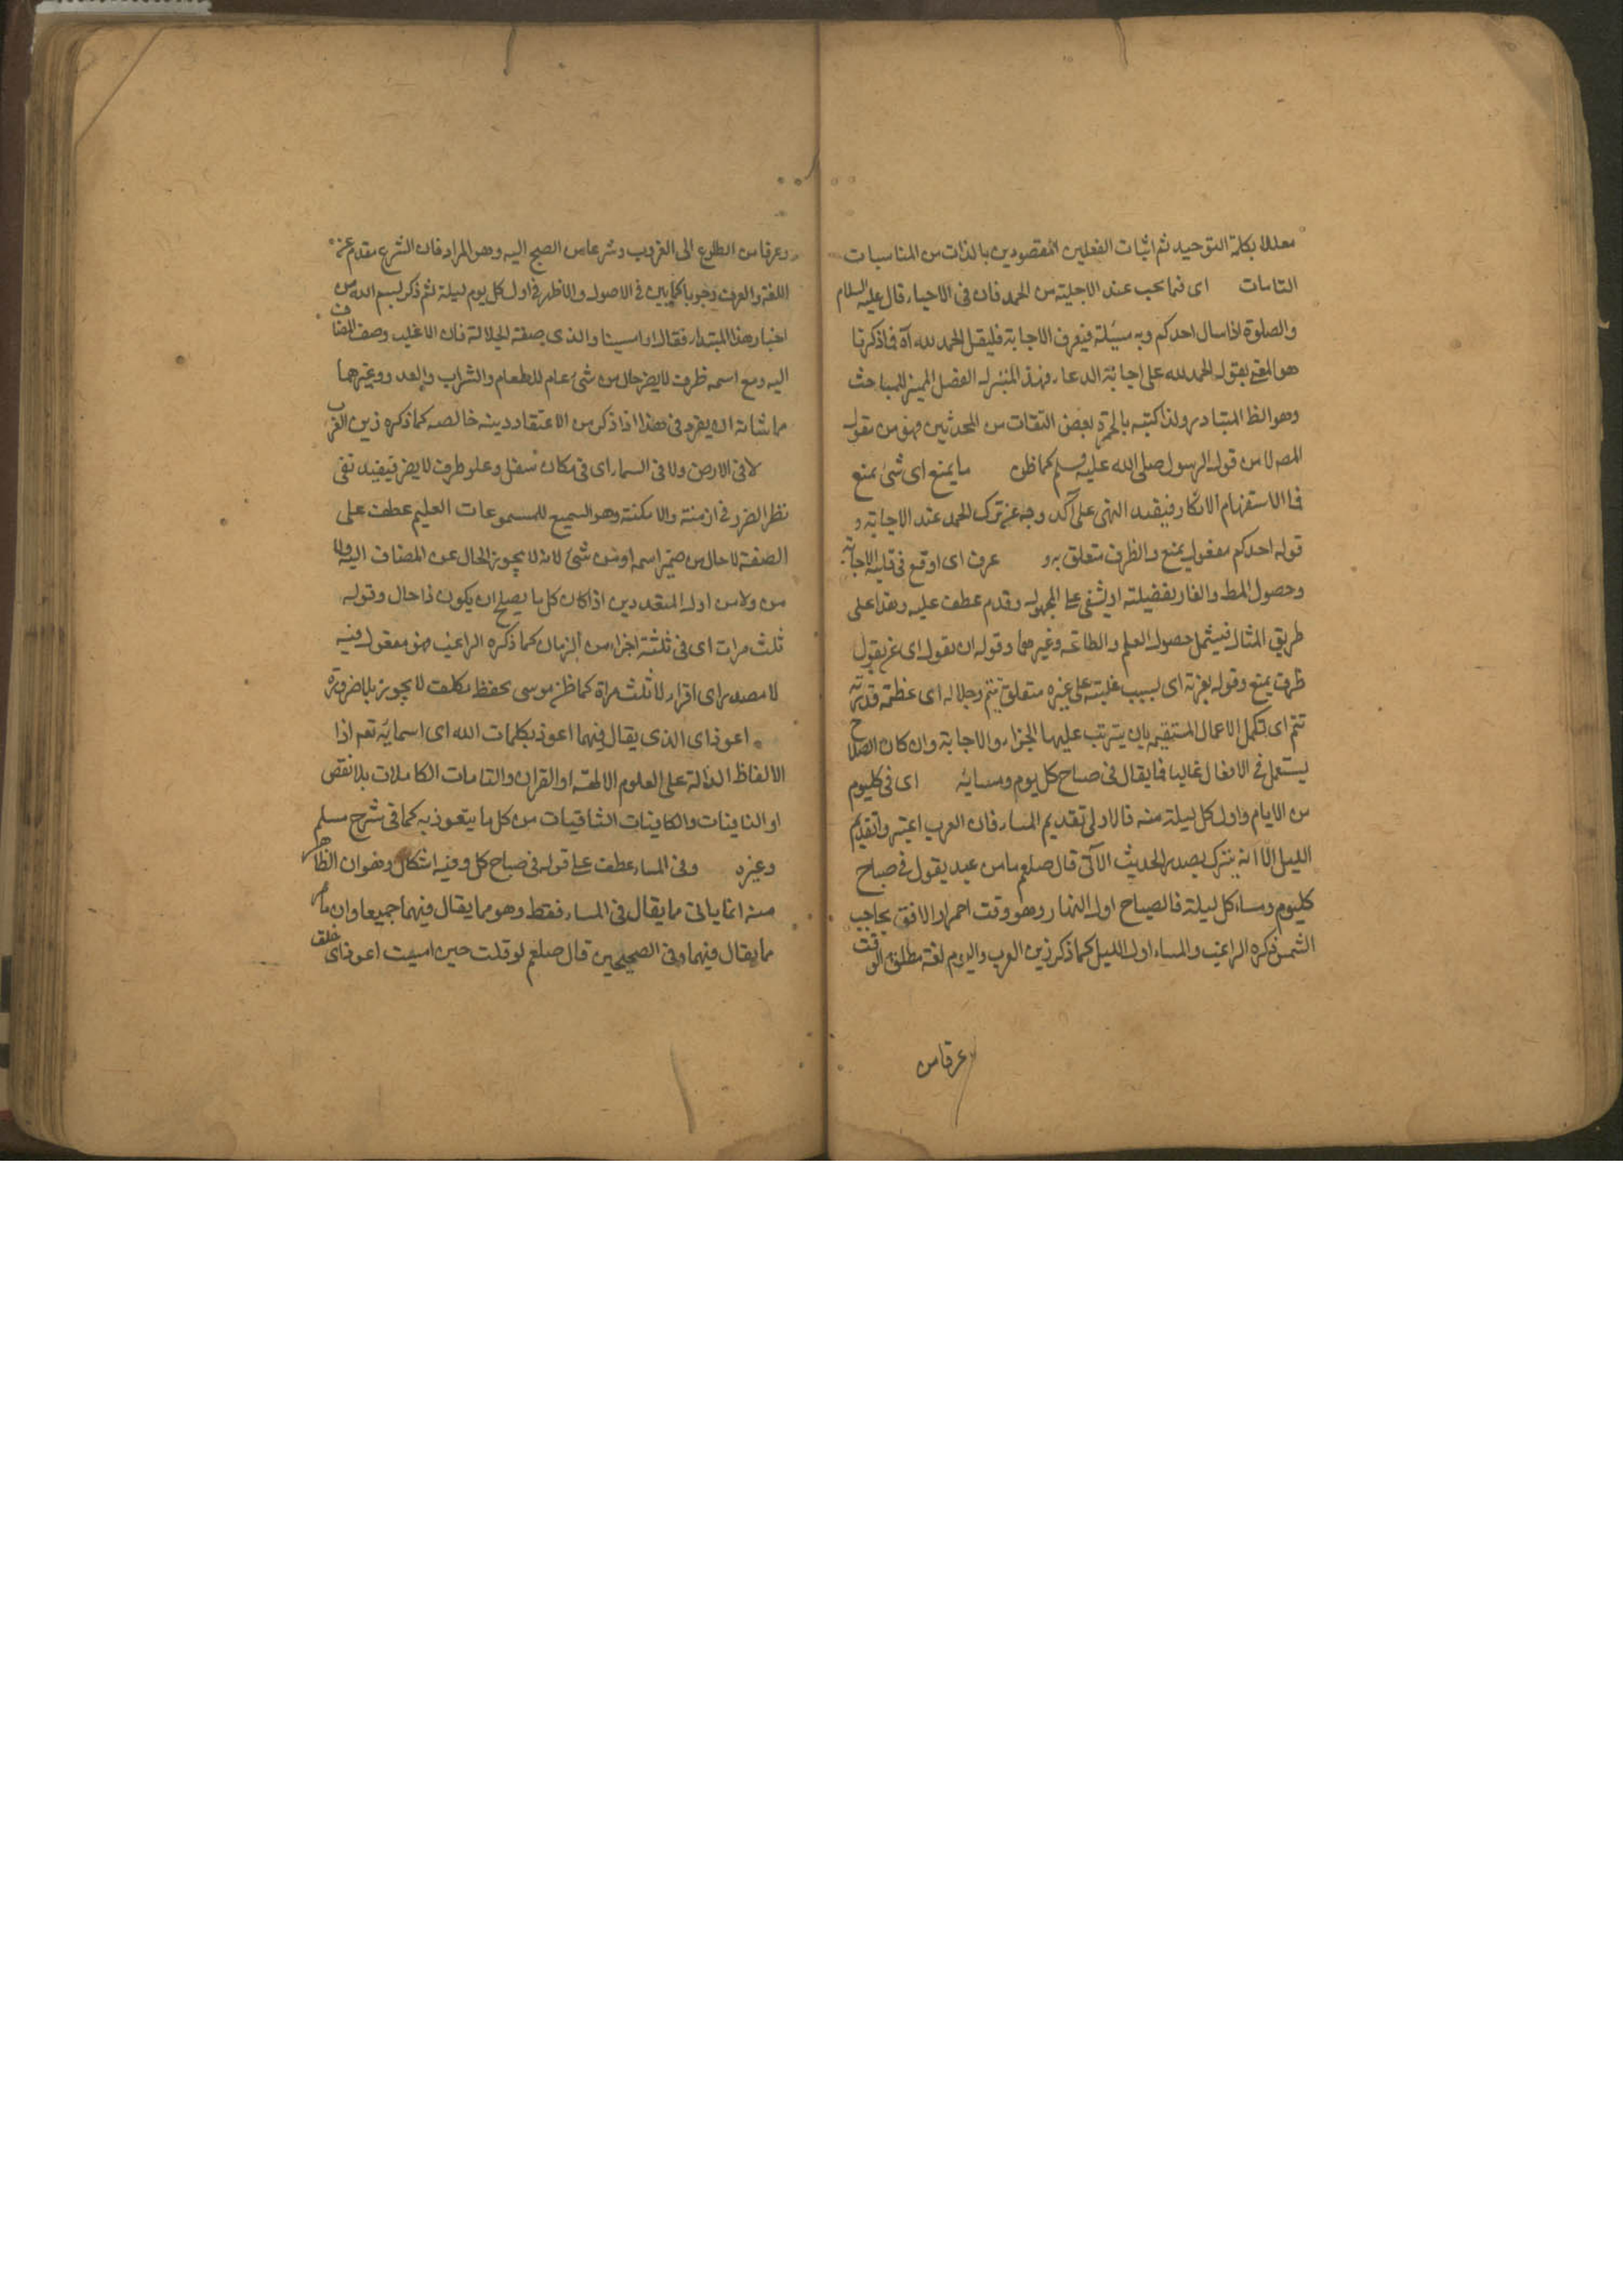 معللا بكلمة التوحيد ثم اثبات الفعلين المقصودين بالذات من المناسبات
التامات اى فيما يجب عند الاجابة من الحمد فان فى الاحياء قال عليه السلام
والصلوة اذا سال احدكم ربه مسئلة فيعرف الاجابة فليقل الحمد لله آه فما ذكرنا
هو المعنى بقوله الحمد لله على اجابة الدعاء فهذا بمنزلة الفصل المميز للمباحث
وهو الظ المتبادر ولذا كتبه بالحمرة بعض الثقات من المحدثين فهو من مقول
المصه لا من قول الرسول صلى الله عليه وسلم كما ظن ما يمنع اى شئ يمنع
فما الاستفهام الانكار فيفيد النهى على آكد وجه عن ترك الحمد عند الاجابة و
قوله احدكم مفعول يمنع والظرف متعلق به و عرف اى اوقع فى قلبه الاجابة
وحصول المط والفاء تفصيلية او يشفى على المجهول وقدم عطف عليه وهذا على
طريق المثال فيشمل حصول العلم والطاعة وغيرهما وقوله ان يقول اى عن يقول
ظرف يمنع وقوله بعزته اى بسبب غلبته على غيره متعلق بتتم وجلاله اى عظمة قدرته
تتم اى تكمل الاعمال المستقيمة بان يترتب عليها الجزاء والاجابة وان كان الصلاح
يستعمل فى الافعال غالبا فيما يقال فى صباح كل يوم ومسائه اى فى كل يوم
من الايام واول كل ليلة منه فالاولى تقديم المساء فان العرب اعتبروا تقديم
الليل الا انه يتبرك بصدر الحديث الآتى قال صلعم ما من عبد يقول فى صباح
كل يوم ومساء كل ليلة فالصباح اول النهار وهو وقت احمرار الافق بحاجب
الشمس ذكره الراغب والمساء اول الليل كما ذكر زين العرب واليوم لغة مطلق الوقت
وعرفا من
وعرفا من الطلوع الى الغروب وشرعا من الصبح اليه وهو المراد فان الشرع مقدم عن
اللغة والعرف وجوبا كما بين فى الاصول والاظهر فى اول كل يوم ليلة ثم ذكر بسم الله من
اخبار هذا المبتداء فقال اما سيبنا والذى صفة الجلالة فان الاغلب وصف المضاف
اليه ومع اسمه ظرف لا يضر حال من شئ عام للطعام والشراب والعدو وغيرهما
ما شانه ان يضر وفى هذا اذا ذكر من الاعتقاد ونية خالصة كما ذكره زين العرب
لا فى الارض ولا فى السماء اى فى مكان سفل وعلو ظرف لا يضر فيفيد نفى
نظر الضرر فى ازمنة والامكنة وهو السميع للمسموعات العليم عطف على
الصفة لا حال من ضمير اسمه او من شئ لانه لا يجوز الحال عن المضاف اليه ولا
من ولا من اول المتعددين اذا كان كل ما يصلح ان يكون ذا حال وقوله
ثلث مرات اى فى ثلثة اجزاء من الزمان كما ذكره الراغب فهو مفعول فيه
لا مصدر اى اقرار لا ثلث مراة كما ظن موسى بحفظ مكلف لا يجوز بلا ضرورة
اعوذ اى الذى يقال فيهما اعوذ بكلمات الله اى اسمائه تعم اذا
الالفاظ الدالة على العلوم الالهية او القران والتامات الكاملات بلا نقص
او النافعات والكافيات الشافيات من كل ما يتعوذ به كما فى شرح مسلم
وغيره وفى المساء عطف على قوله فى صباح كل وفيه اشكال وهو ان الظاهر
منه انما ياتى ما يقال فى المساء فقط وهو مما يقال فيهما جميعا وان ما
ما يقال فيهما وفى الصحيحين قال صلعم لو قلت حين امسيت اعوذ اى خلق